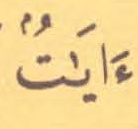 ءَايَٰتٌ